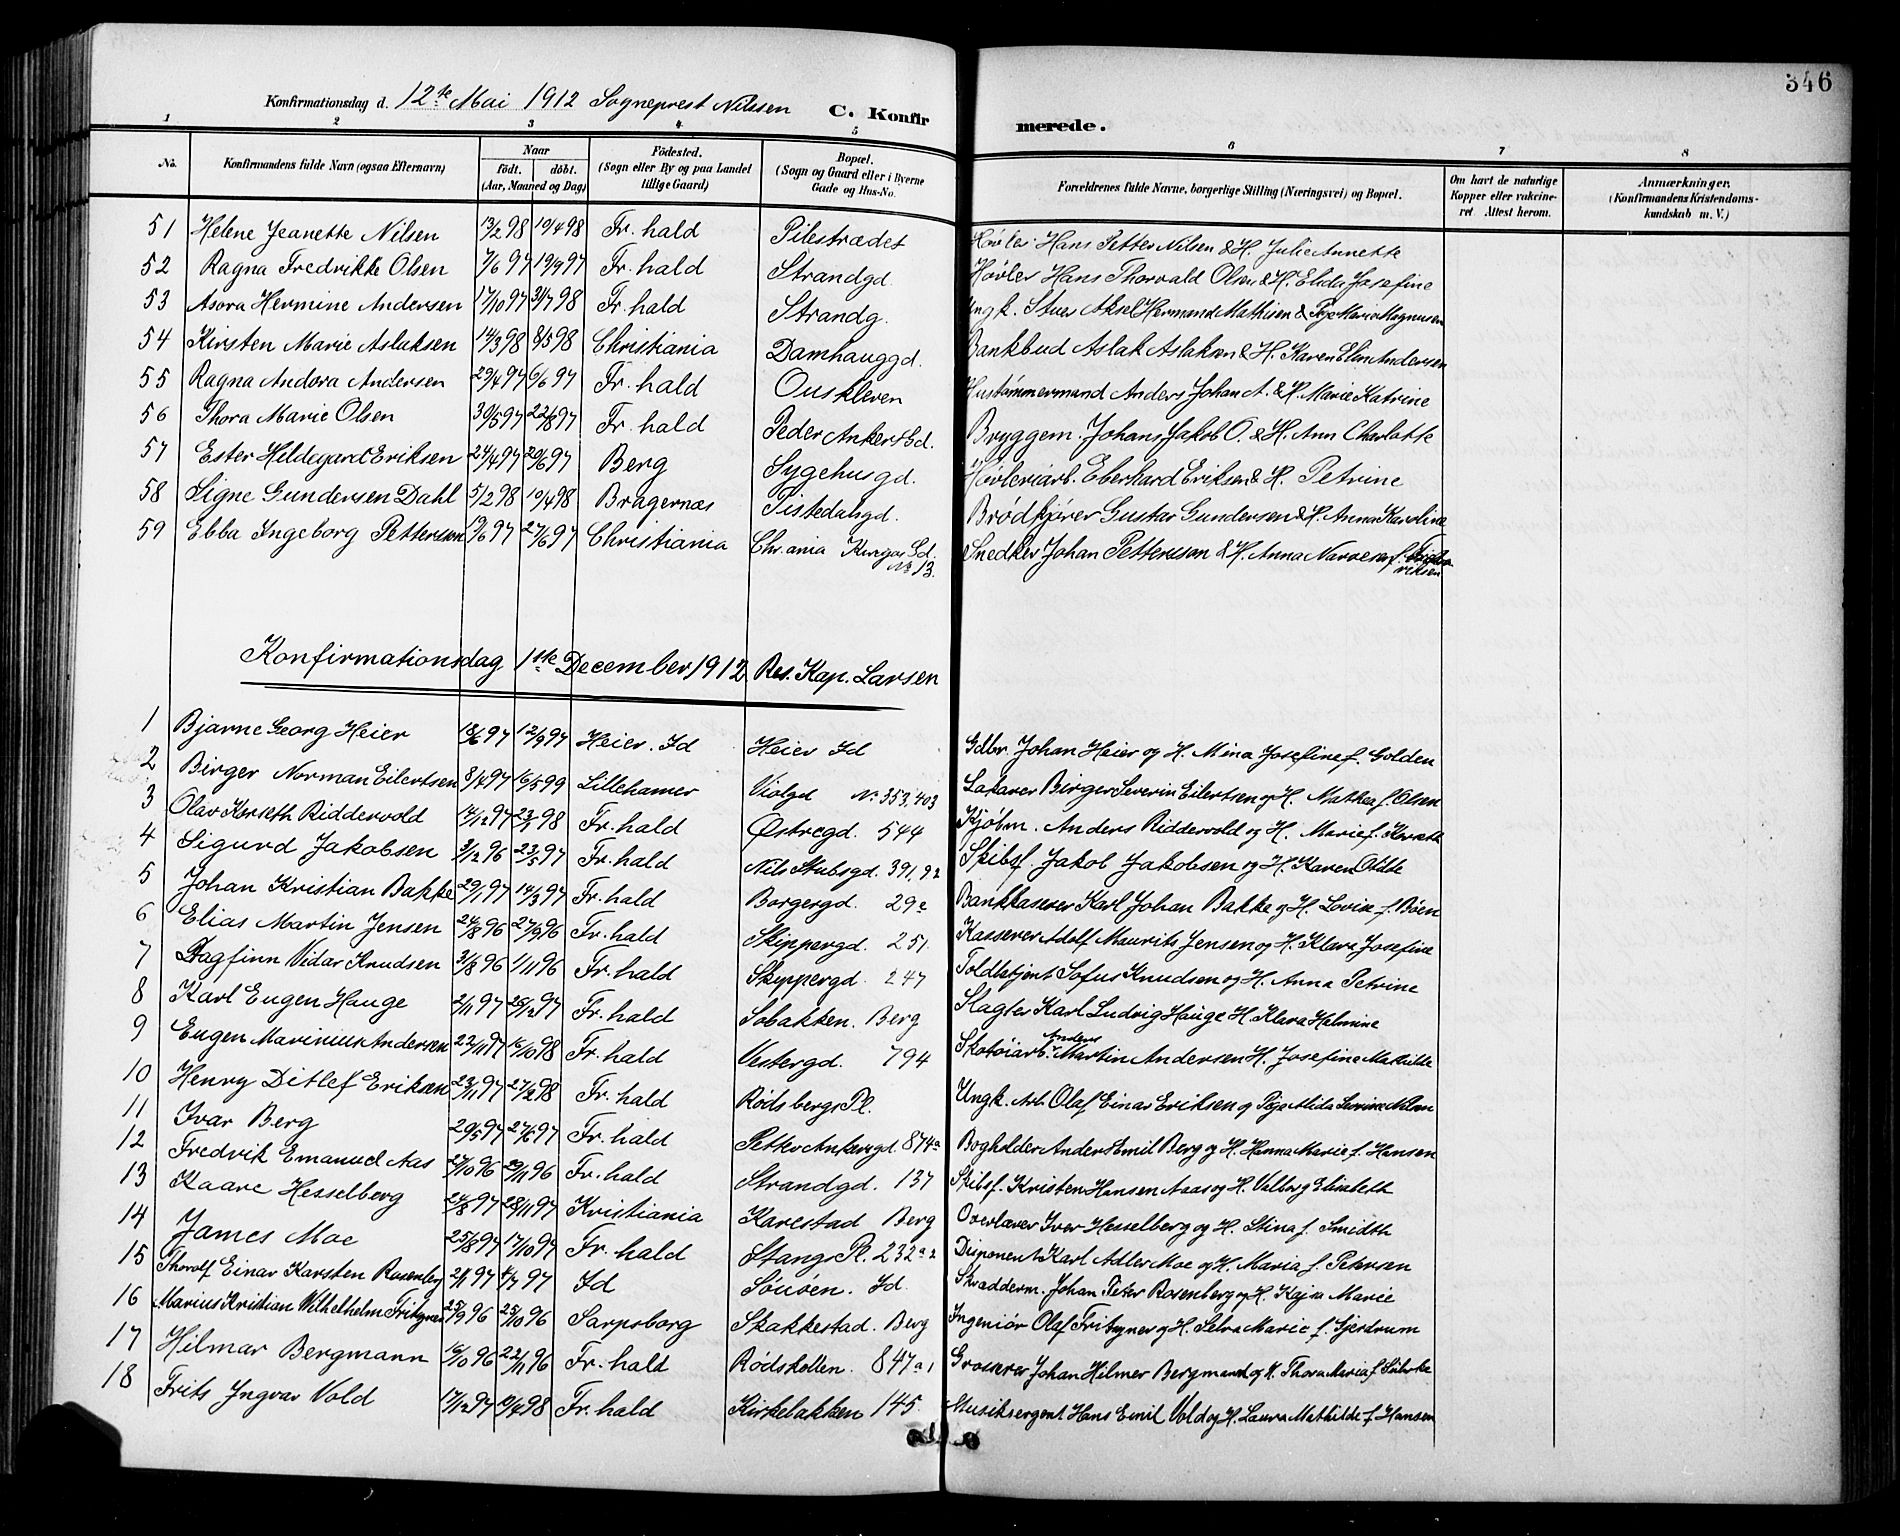 346
Konfirmationsdag d. 12te Mai 1912 Sogneprest Nilssen C. Konfirmerede.
1 2 3 4 5 6 7 8
No. Konfirmandens fulde Navn (ogsaa Efternavn) Naar födt. döbt. (Aar, Maaned og Dag) Födested. (Sogn eller By og paa Landet tillige Gaard) Bopæl. (Sogn og Gaard eller i Byerne Gade og Hus-No. Forældrenes fulde Navne, borgerlige Stilling (Næringsvei) og Bopæl. Om havt de naturlige Kopper eller vakcineret Attest herom. Anmærkninger. (Konfirmandens Kristendomskundskab m. V.)
51 Helene Jeanette Nilsen 13/2 98 10/4 98 Fr. hald Pilestrædet Høvler Hans Petter Nilsen & H. Julie Annette
52 Ragna Fredrikke Olsen 7/6 97 19/9 97 Fr. hald Strandgd. Høvler Hans Thorvald Olsen & H. Elida Josefine
53 Asora Hermine Andersen 17/10 97 31/7 98 Fr. hald Strandg. Ungk. Stuer Aksel Hermand Mathisen & Pige Maria Magnusen
54 Kirsten Marie Aslaksen 14/3 98 8/5 98 Christiania Damhauggd. Bankbud Aslak Aslaksen & H. Karen Elin Andersen
55 Ragna Andora Andersen 29/4 97 6/6 97 Fr. hald Ouskleven Hustømmermand Anders Johan A. & H. Marie Katrine
56 Thora Marie Olsen 30/5 97 22/8 97 Fr. hald Peder Ankers Gd. Bryggem. Johans Jakob O. & H. Ann Charlotte
57 Ester Hildegard Eriksen 24/4 97 20/6 97 Berg Sygehusgd. Høvleriarb. Eberhard Eriksen & H. Petrine
58 Signe Gundersen Dahl 5/2 98 10/4 98 Bragernæs Tistedalsgd. Brødkjører Gustav Gundersen & H. Anna Karoline
59 Ebba Ingeborg Pettersson 19/6 97 27/6 97 Christiania Chr.ania Gd. No 13. Snedker Johan Pettersson & H. Anna Narvesen f.
Konfirmationsdag 1ste December 1912 Res. Kap. Larsen
1 Bjarne Georg Heier 18/6 97 12/9 97 Heier. Id Heier Id Gdbr. Johan Heier og H. Mina Josefine f. Golden
2 Birger Norman Eilertsen 8/4 97 16/5 99 Lillehamer Violgd No. 353, 403 Birger Severin Eilertsen og H. Mathea f. Olsen
3 Olav Korseth Riddervold 14/12 97 23/1 98 Fr. hald Østregd. 544 Kjøbm. Anders Riddervold og H. Marie f. Korseth
4 Sigurd Jakobsen 3/12 96 23/5 97 Fr. hald Nils Stubsgd. 391, 92 Skibsf. Jakob Jakobsen og H. Karen Otilde
5 Johan Kristian Bakke 29/1 97 14/3 97 Fr. hald Borgergd. 29e Bankkaserer Karl Johan Bakke og H. Lovise f. Bøen
6 Elias Martin Jensen 24/8 96 27/9 96 Fr. hald Skippergd. 251. Kasserer Adolf Maurits Jensen og H. Klara Josefine
7 Dagfinn Vidar Knudsen 31/8 96 1/11 96 Fr. hald Skippergd. 247 Toldbetjent Sofus Knudsen og H. Anna Petrine
8 Karl Eugen Hauge 2/11 97 25/12 97 Fr. hald Sobakken. Berg Slagter Karl Ludvig Hauge H. Klara Halmine
9 Eugen Marinius Andersen 22/11 97 16/10 98 Fr. hald Vestergd. 794 Skotøiarb. Anders Martin Andersen H. Josefine Mathilde
10 Henry Ditlef Eriksen 23/11 97 27/2 98 Fr. hald Rødsbergs Pl. Ungk. Arb. Olaf Einar Eriksen og Pige Alida
11 Ivar Berg 29/5 97 27/6 97 Fr. hald Petter Ankersgd. 874a Bogholder Anders Emil Berg og H. Hanna Marie f. Hansen
12 Fredrik Emanuel Aas 27/10 96 29/11 96 Fr. hald Strandgd. 137 Skibsf. Kristen Hansen Aaas og H. Valborg Elisabeth
13 Kaare Hesselberg 24/8 97 28/11 97 Kristiania Karestad Berg Overlærer Iver Hesselberg og H. Stina f. Smidth
14 James Moe 25/8 97 17/10 97 Fr. hald Stangs Pl. 232a2 Disponent Karl Adler Moe og H. Maria f. Petersen
15 Thorolf Einar Karsten Rosenberg 2/1 97 4/7 97 Id Søuøen. Id. Skrædderm. Johan Peter Rosenberg og H. Kajsa Marie
16 Marius Kristian Vilhelhelm Fritzner 25/9 96 25/10 96 Sarpsborg Skakkestad. Berg Ingeniør Olaf Fritzner og H. Petra Marie f. Gjerdrum
17 Hilmar Bergmann 16/10 96 22/11 96 Fr. hald Rødskollen. 847a1 Grosserer Johan Hilmer Bergmann og H. Thora Maria f. Lübcke
18 Frits Ingvar Vold 17/12 97 11/4 98 Fr. hald Kirkebakken 145. Musiksergent Hans Emil Vold og H. Laura Mathilde f. Hansen